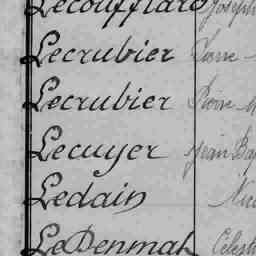 Lecoufflard Joseph
Lecrubier Pierre
Lecrubier Pierre
Lecuyer Jean Bap
Ledain
LeDenmat Celest